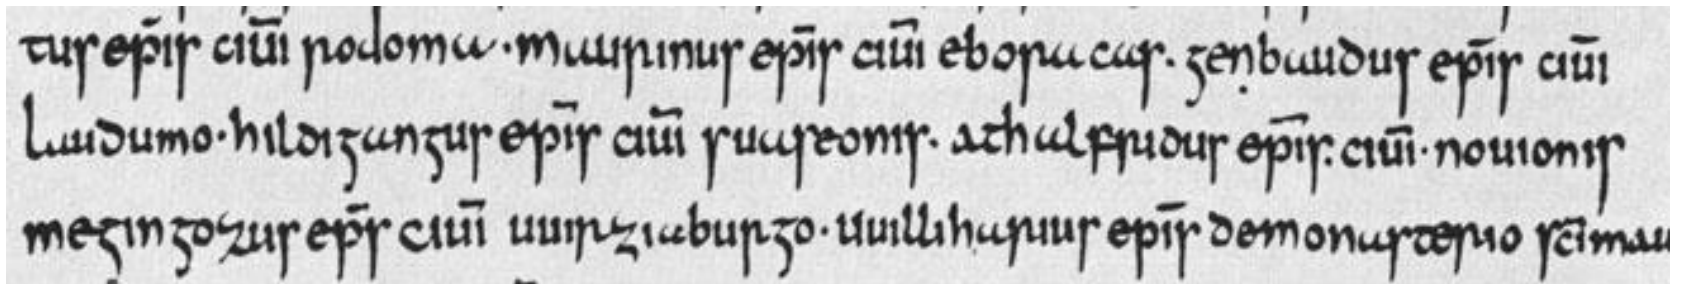 tus ep̄is ciūi rodoma · maurinus ep̄is ciūi eboracas . genbaudus ep̄is ciūi
laudumo · hildigangus ep̄is ciūi suaseonis . athalfridus ep̄is . ciūi · nouionis
megingozus ep̄s ciūi uuirziaburgo · uuilliharius ep̄is de monasterio sc̄i mau